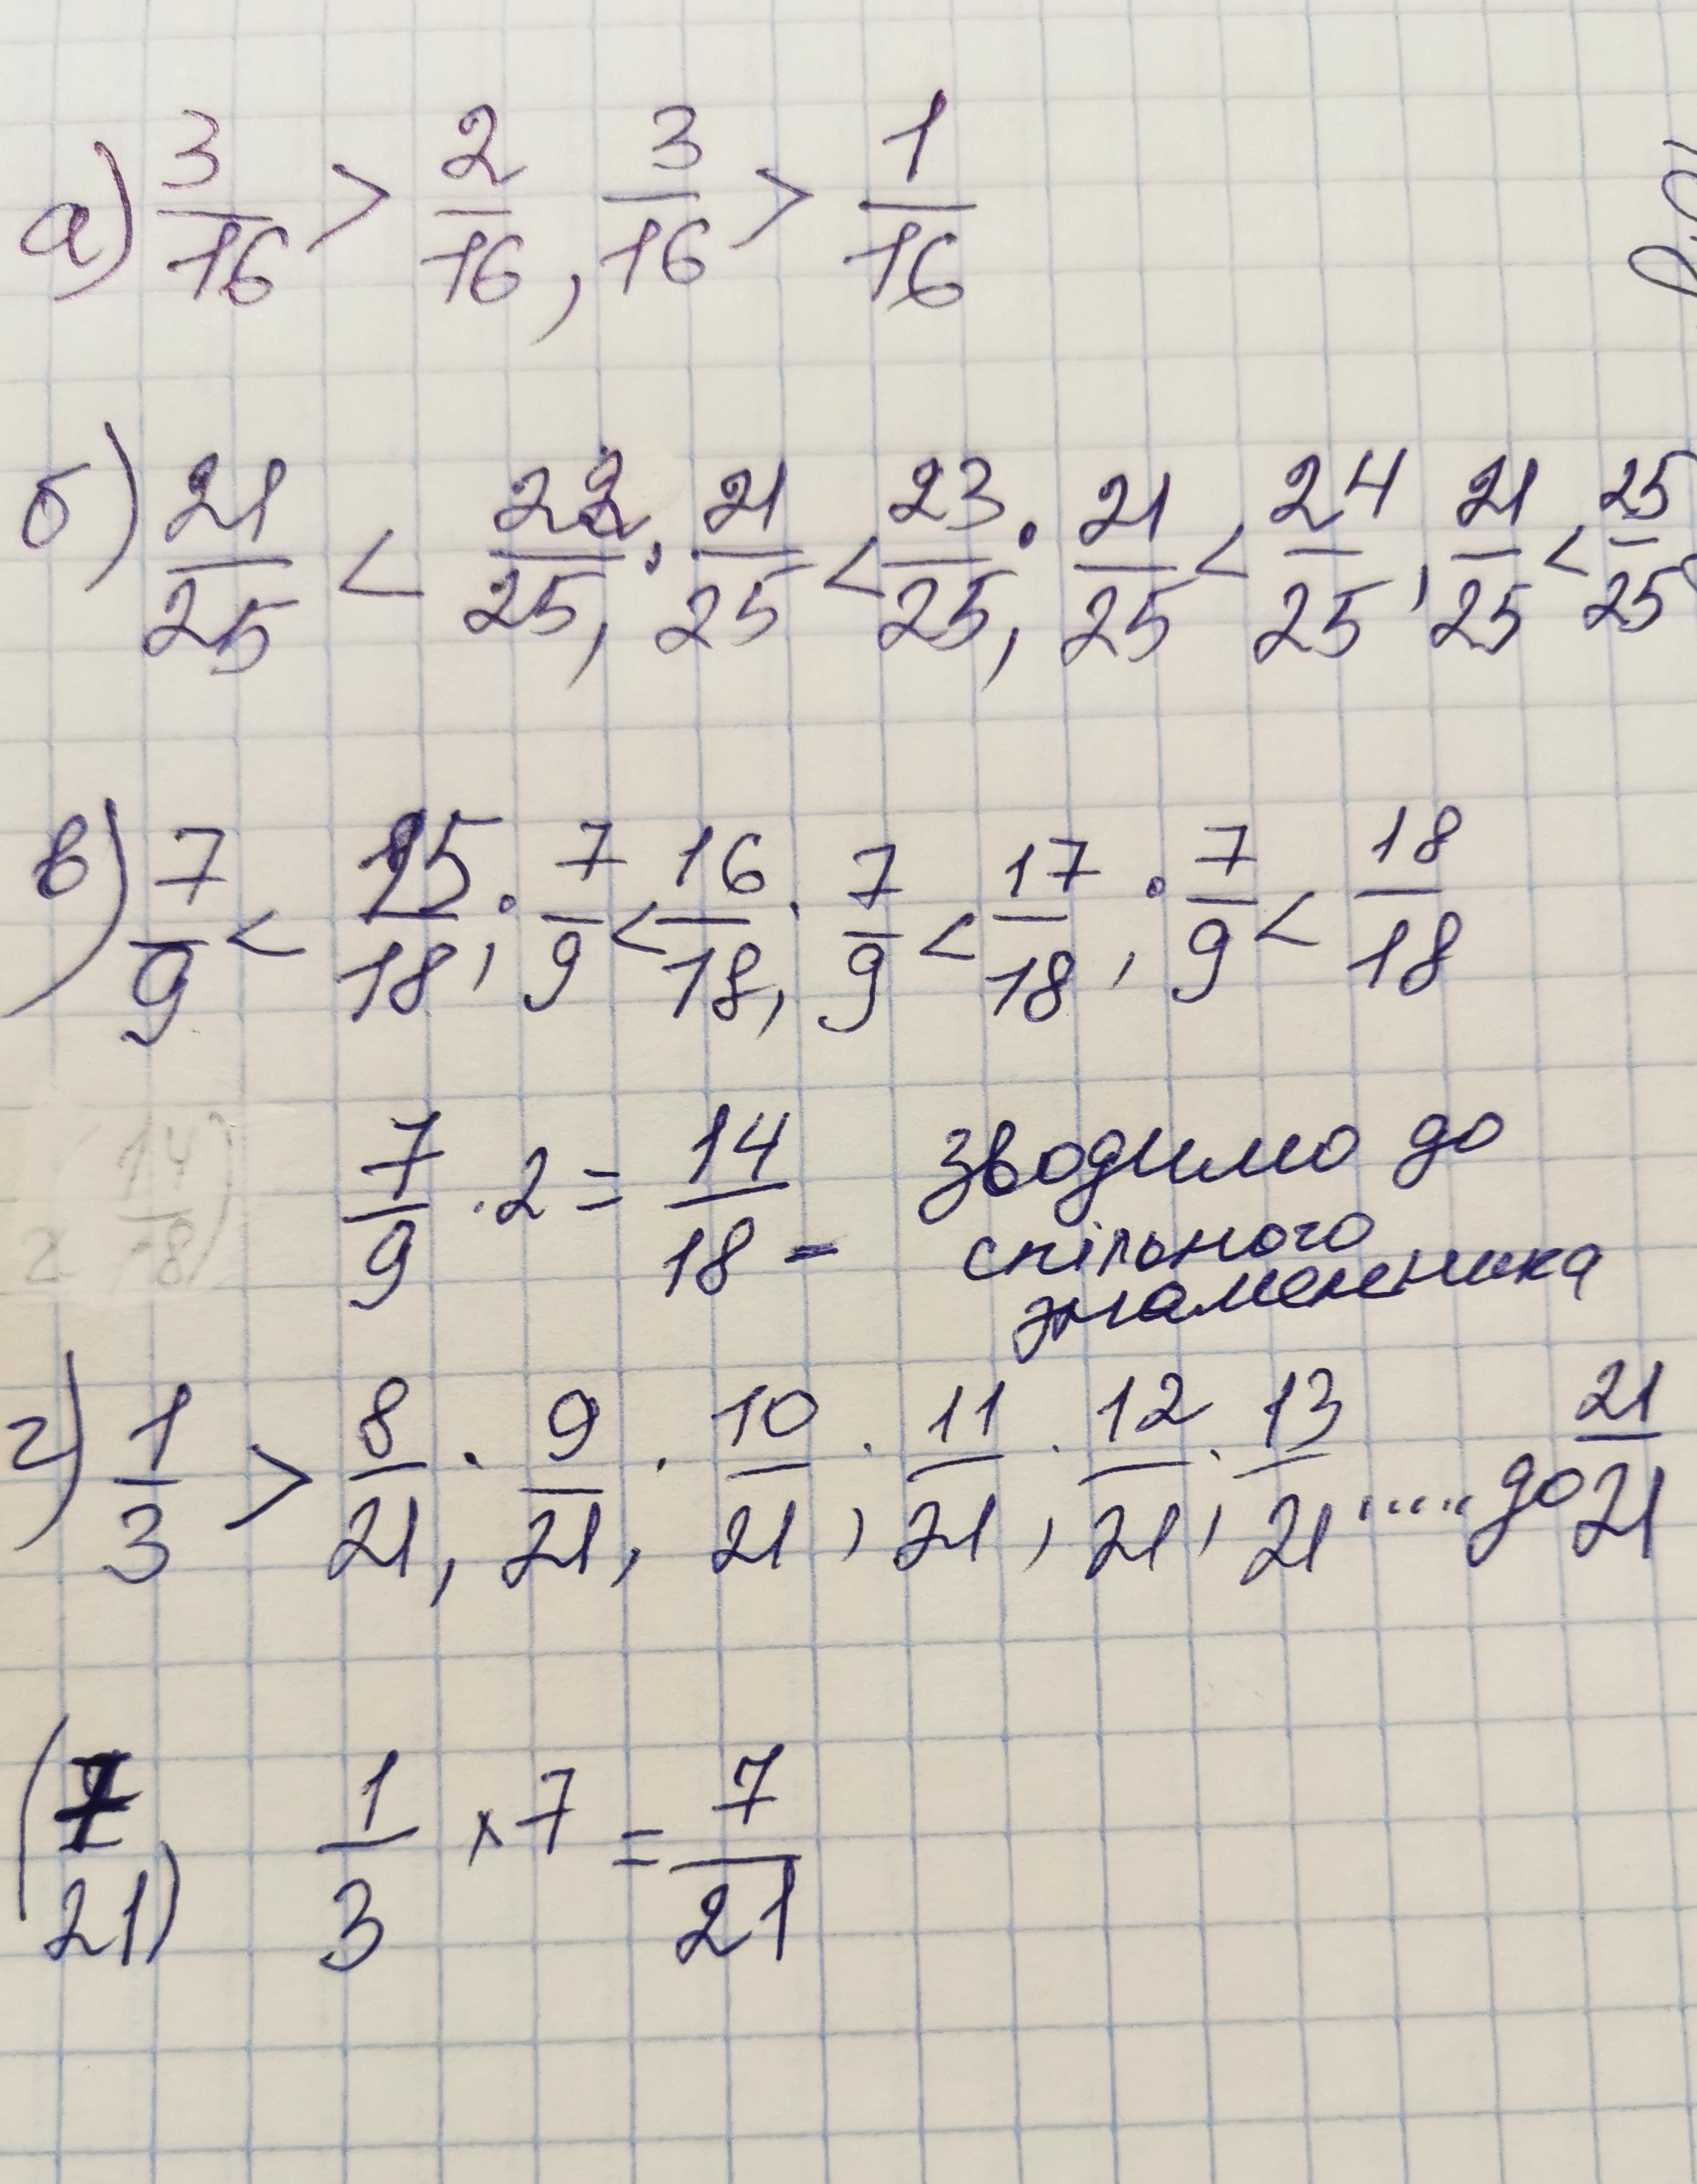 а) 3/16 > 2/16, 3/16 > 1/16
б) 21/25 < 22/25; 21/25 < 23/25; 21/25 < 24/25; 21/25 < 25/25
в) 7/9 < 15/18; 7/9 < 16/18; 7/9 < 17/18; 7/9 < 18/18
14/18)
2
7/9 · 2 = 14/18 - зводимо до
спільного
знаменника
г) 1/3 > 8/21; 9/21; 10/21; 11/21; 12/21; 13/21 ..... до 21/21
(7/21) 1/3 × 7 = 7/21